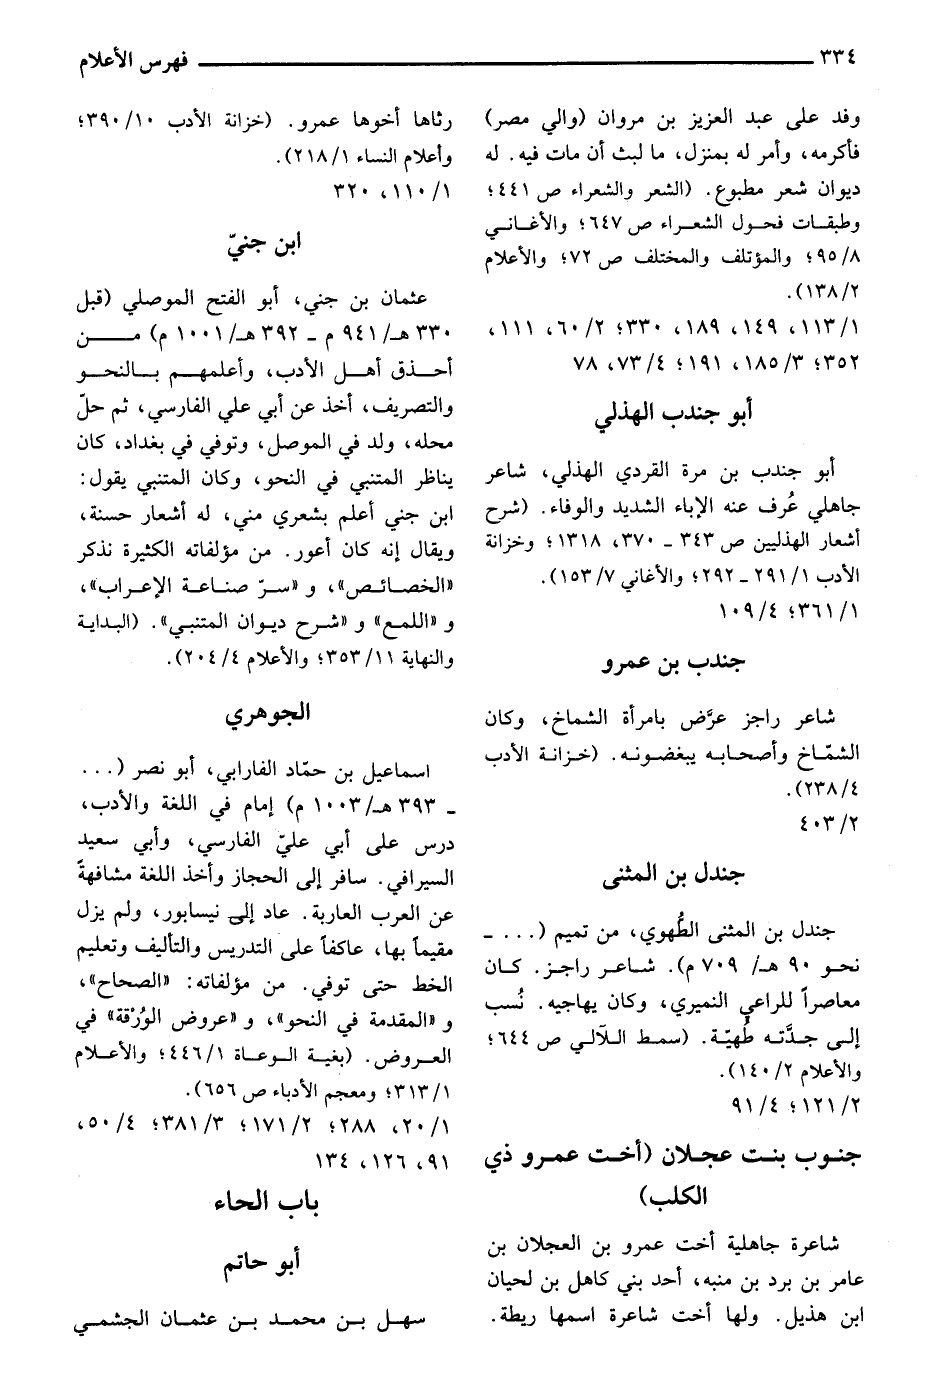 ٣٣٤ ــــــــــ فهرس الأعلام
وفد على عبد العزيز بن مروان (والي مصر)
فأكرمه، وأمر له بمنزل، ما لبث أن مات فيه. له
ديوان شعر مطبوع. (الشعر والشعراء ص ٤٤١؛
وطبقات فحول الشعراء ص ٦٤٧؛ والأغاني
٩٥/٨؛ والمؤتلف والمختلف ص ٧٢؛ والأعلام
١٣٨/٢).
١١٣/١، ١٤٩، ١٨٩، ٣٣٠؛ ٦٠/٢، ١١١،
٣٥٢؛ ١٨٥/٣، ١٩١؛ ٧٣/٤، ٧٨
أبو جندب الهذلي
أبو جندب بن مرة القردي الهذلي، شاعر
جاهلي عُرف عنه الإباء الشديد والوفاء. (شرح
أشعار الهذليين ص ٣٤٣ ـ ٣٧٠، ١٣١٨؛ وخزانة
الأدب ٢٩١/١ ـ ٢٩٢؛ والأغاني ١٥٣/٧).
٣٦١/١؛ ١٠٩/٤
جندب بن عمرو
شاعر راجز عرَّض بامرأة الشماخ، وكان
الشمّاخ وأصحابه يبغضونه. (خزانة الأدب
٢٣٨/٤).
٤٠٣/٢
جندل بن المثنى
جندل بن المثنى الطُّهوي، من تميم (... ـ
نحو ٩٠ هـ/ ٧٠٩ م). شاعر راجز. كان
معاصراً للراعي النميري، وكان يهاجيه. نُسب
إلى جدَّته طُهيّة. (سمط اللآلي ص ٦٤٤؛
والأعلام ١٤٠/٢).
١٢١/٢؛ ٩١/٤
جنوب بنت عجلان (أخت عمرو ذي
الكلب)
شاعرة جاهلية أخت عمرو بن العجلان بن
عامر بن برد بن منبه، أحد بني كاهل بن لحيان
ابن هذيل. ولها أخت شاعرة اسمها ريطة.
رثاها أخوها عمرو. (خزانة الأدب ٣٩٠/١٠؛
وأعلام النساء ٢١٨/١).
١١٠/١، ٣٢٠
ابن جنيّ
عثمان بن جني، أبو الفتح الموصلي (قبل
٣٣٠ هـ/ ٩٤١ م ـ ٣٩٢ هـ/ ١٠٠١ م) من
أحذق أهل الأدب، وأعلمهم بالنحو
والتصريف، أخذ عن أبي علي الفارسي، ثم حلّ
محله، ولد في الموصل، وتوفي في بغداد، كان
يناظر المتنبي في النحو، وكان المتنبي يقول:
ابن جني أعلم بشعري مني، له أشعار حسنة،
ويقال إنه كان أعور. من مؤلفاته الكثيرة نذكر
«الخصائص»، و «سرّ صناعة الإعراب»،
و «اللمع» و «شرح ديوان المتنبي». (البداية
والنهاية ٣٥٣/١١؛ والأعلام ٢٠٤/٤).
الجوهري
اسماعيل بن حمّاد الفارابي، أبو نصر (...
ـ ٣٩٣ هـ/ ١٠٠٣ م) إمام في اللغة والأدب،
درس على أبي عليّ الفارسي، وأبي سعيد
السيرافي. سافر إلى الحجاز وأخذ اللغة مشافهةً
عن العرب العاربة. عاد إلى نيسابور، ولم يزل
مقيماً بها، عاكفاً على التدريس والتأليف وتعليم
الخط حتى توفي. من مؤلفاته: «الصحاح»،
و «المقدمة في النحو»، و «عروض الوَرْقة» في
العروض. (بغية الوعاة ٤٤٦/١؛ والأعلام
٣١٣/١؛ ومعجم الأدباء ص ٦٥٦).
٢٠/١، ٢٨٨؛ ١٧١/٢؛ ٣٨١/٣؛ ٥٠/٤،
٩١، ١٢٦، ١٣٤
باب الحاء
أبو حاتم
سهل بن محمد بن عثمان الجشمي